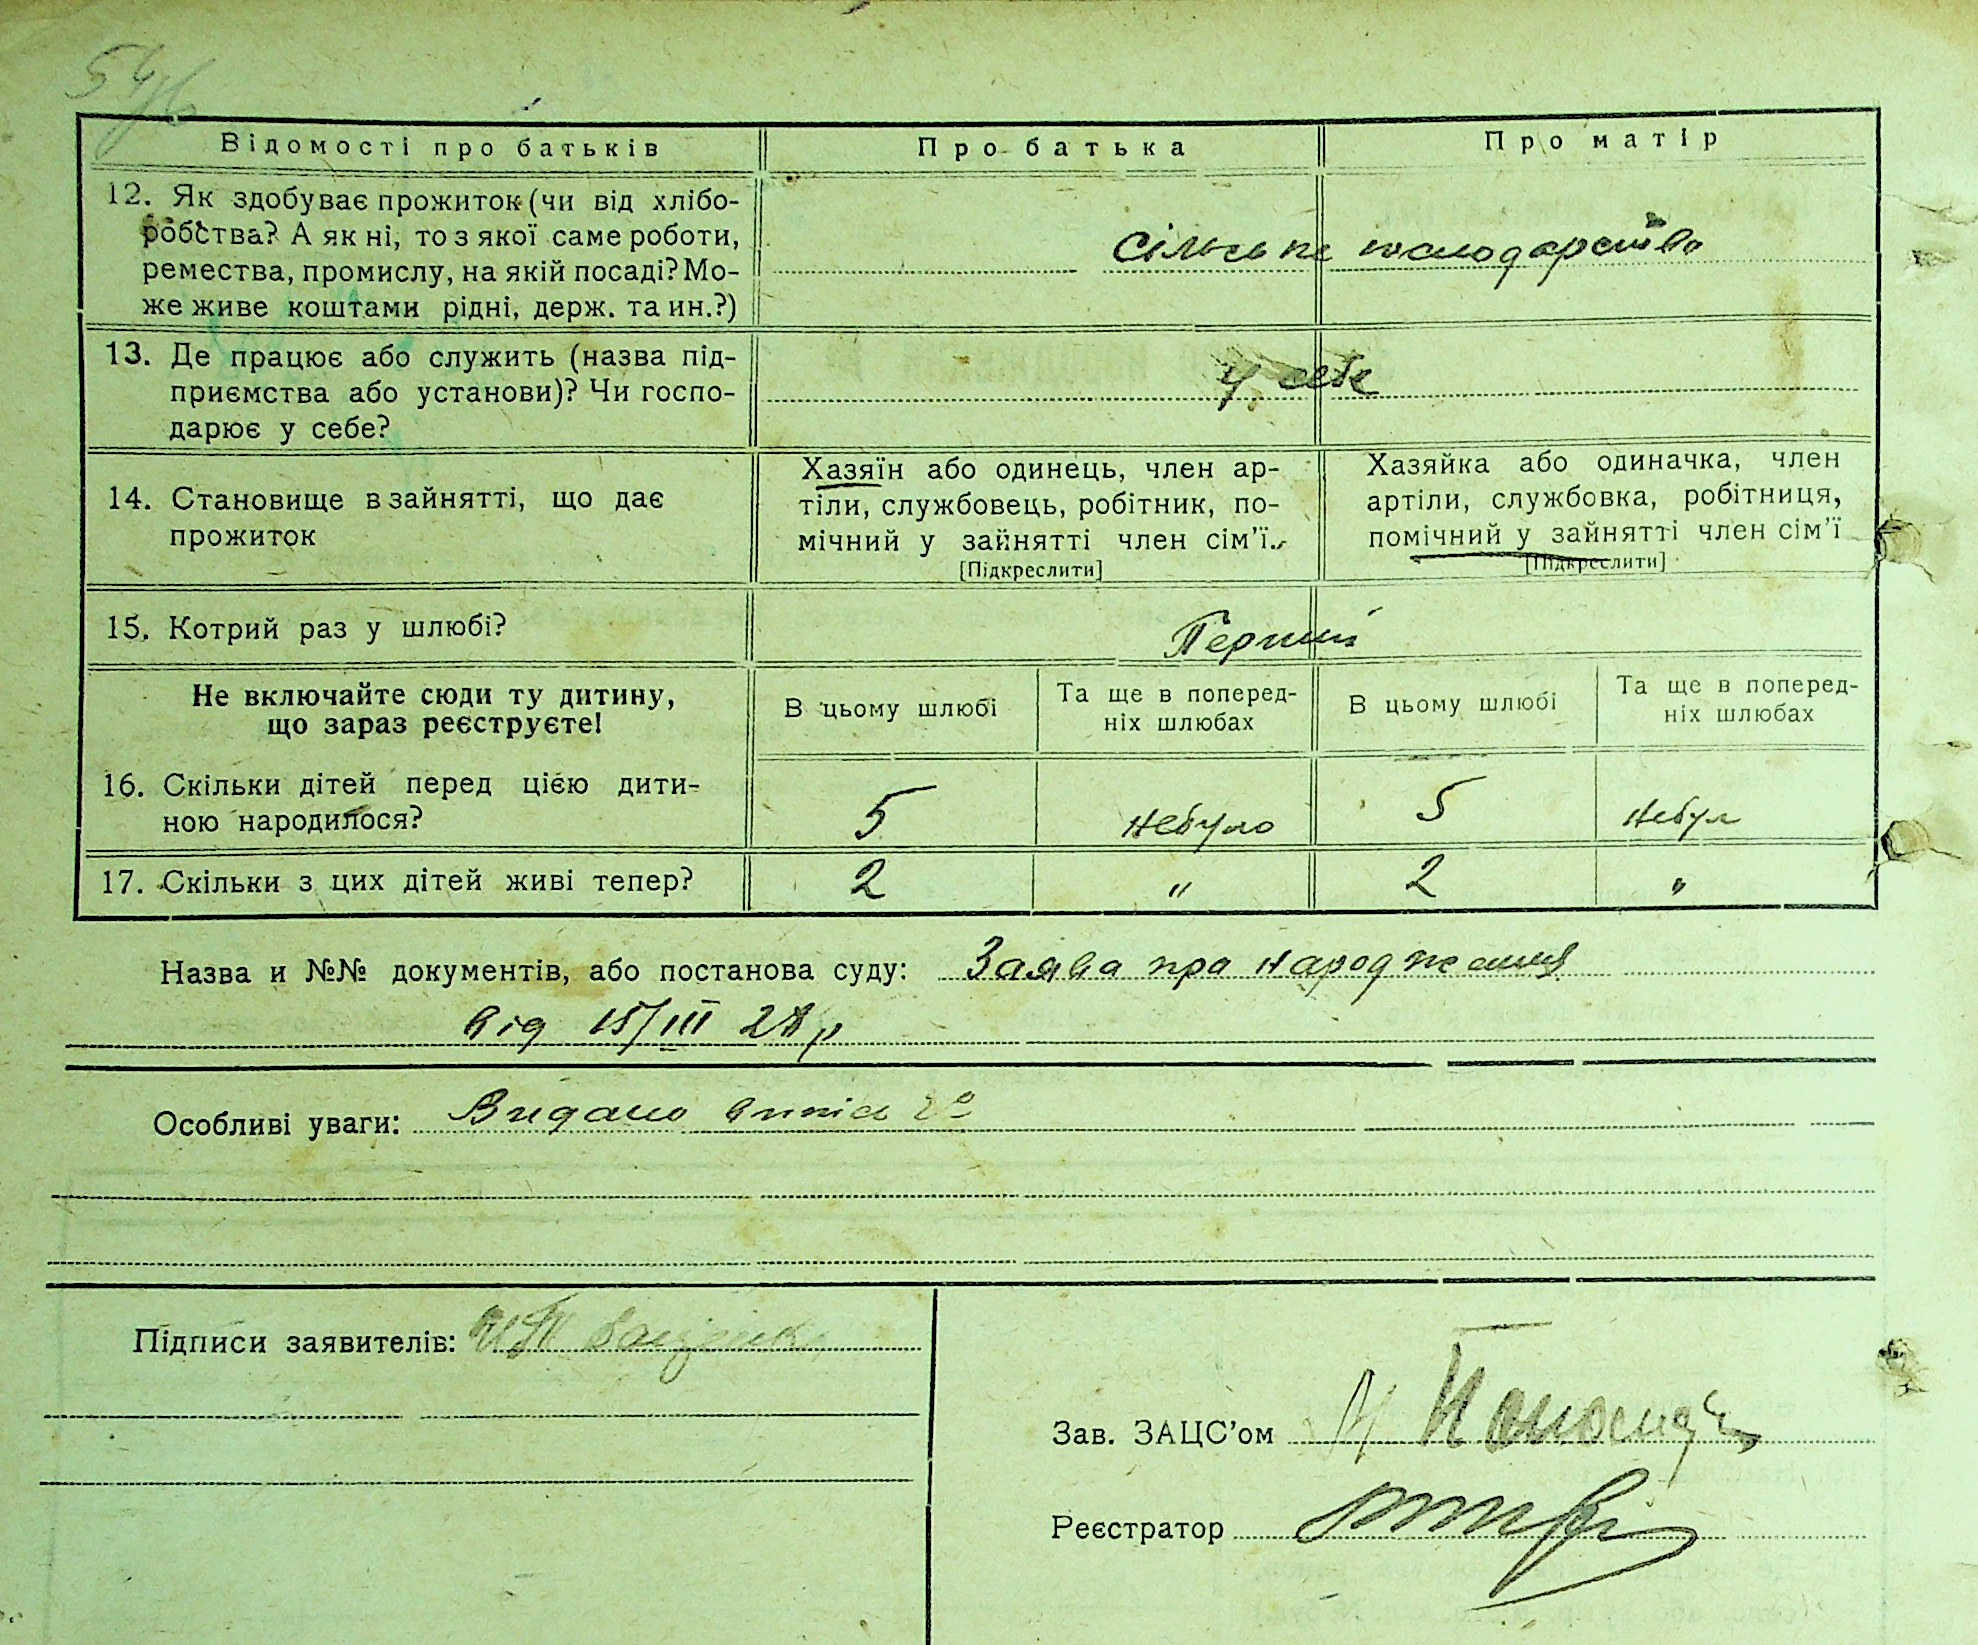 Відомості про батьків
Про батька
Про матір
12. Як здобуває прожиток (чи від хлібо-
робства? А як ні, то з якої саме роботи,
ремества, промислу, на якій посаді? Мо-
же живе коштами рідні, держ. та ин.?)
сільське господарство
13. Де працює або служить (назва під-
приємства або установи)? Чи госпо-
дарює у себе?
у себе
14. Становище в зайнятті, що дає
прожиток
Хазяїн або одинець, член ар-
тіли, службовець, робітник, по-
мічний у зайнятті член сім'ї.
[Підкреслити]
Хазяйка або одиначка, член
артіли, службовка, робітниця,
помічний у зайнятті член сім'ї
[Підкреслити]
15. Котрий раз у шлюбі?
Перший
Не включайте сюди ту дитину,
що зараз реєструєте!
В цьому шлюбі
Та ще в поперед-
ніх шлюбах
В цьому шлюбі
Та ще в поперед-
ніх шлюбах
16. Скільки дітей перед цією дити-
ною народилося?
5
небуло
5
небул
17. Скільки з цих дітей живі тепер?
2
"
2
"
Назва и №№ документів, або постанова суду: Заява про народження
від 15/III 28 р
Особливі уваги: Видано випис
Підписи заявителів:
Зав. ЗАЦС'ом
Реєстратор